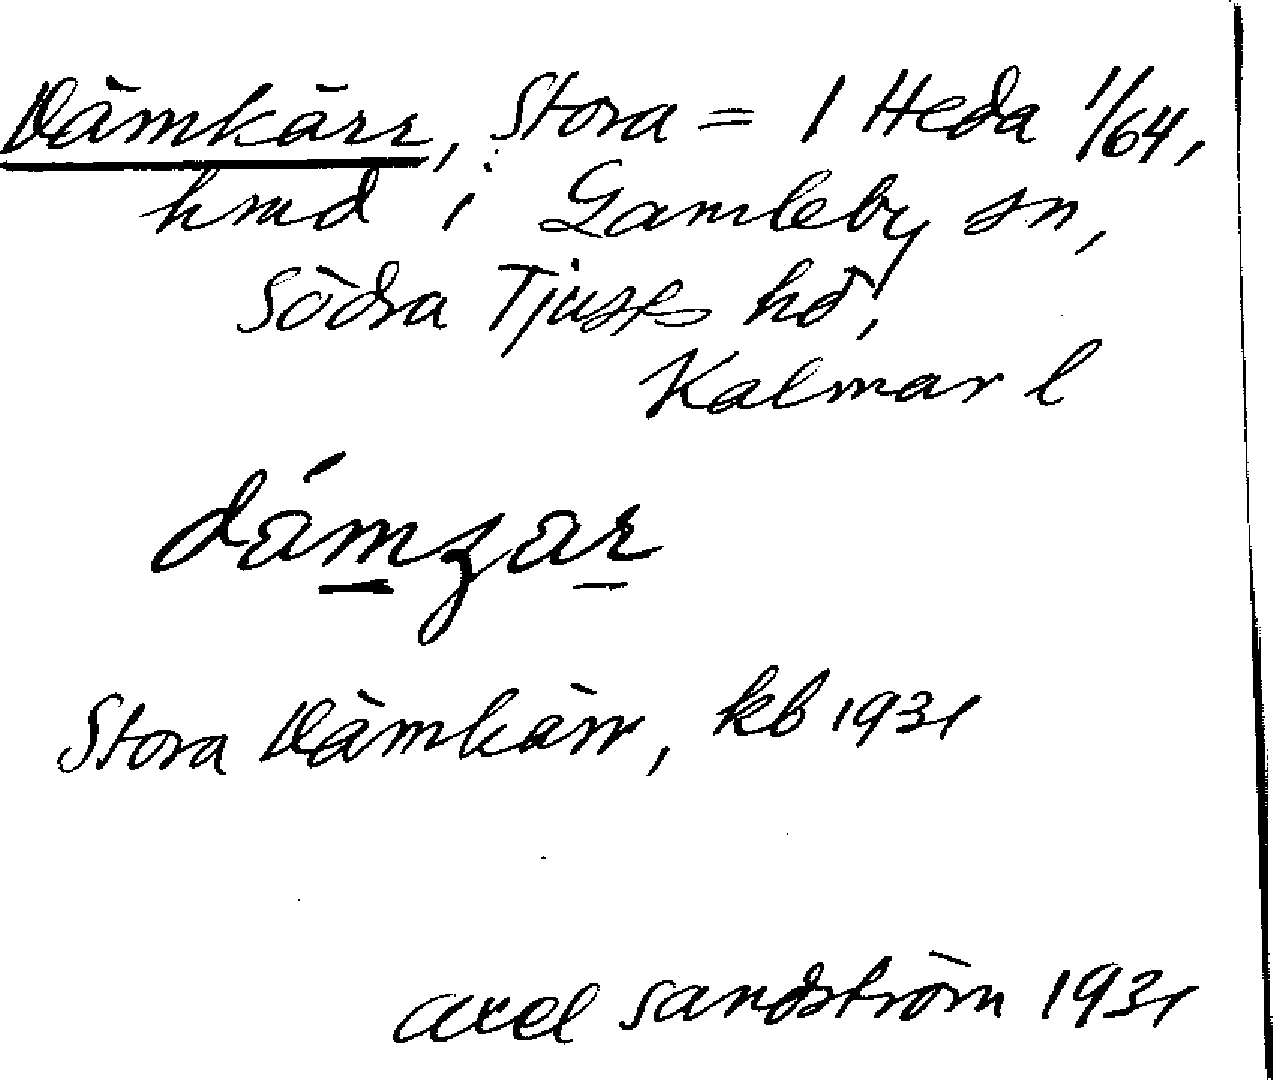 Dämkärr, Stora = 1 Heda 1/64,
hmd i Gamleby sn,
Södra Tjusts hd,
Kalmar l
dámzar
Stora Dämkärr, kb 1931
Axel Sandström 1931